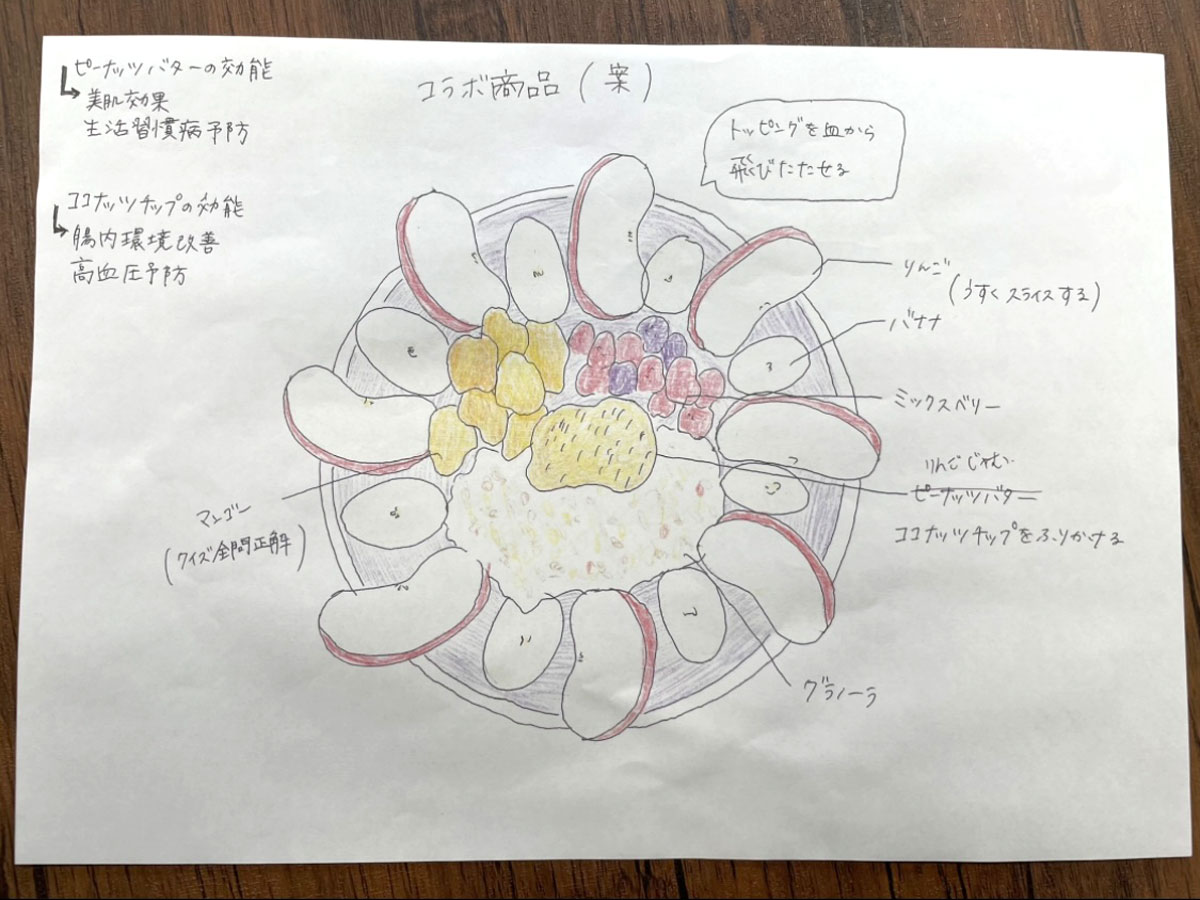 ピーナッツバターの効能
美肌効果
生活習慣病予防
ココナッツチップの効能
腸内環境改善
高血圧予防
コラボ商品(案)
トッピングを皿から
飛びたたせる
りんご
(うすくスライスする)
バナナ
ミックスベリー
りんごじゃむ
ピーナッツバター
ココナッツチップをふりかける
グラノーラ
マンゴー
(クイズ全問正解)